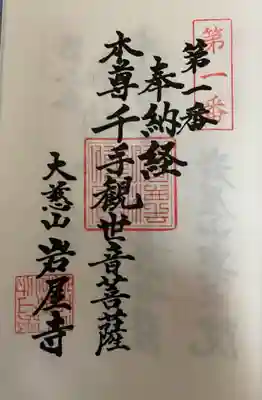 第一番
第一番
奉納経
本尊千手観世音菩薩
大慈山
岩屋寺